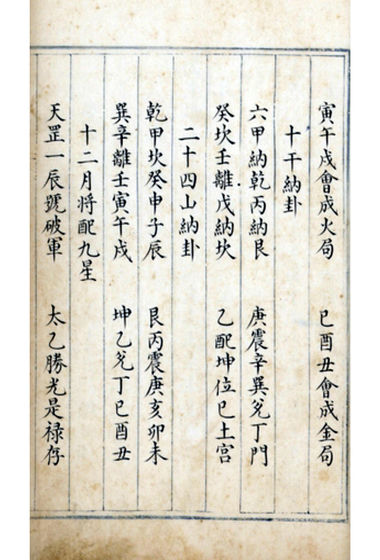 寅午戌會成火局　巳酉丑會成金局
十干納卦
六甲納乾丙納艮　庚震辛巽兌丁門
癸坎壬離戊納坎　乙配坤位巳土宮
二十四山納卦
乾甲坎癸申子辰　艮丙震庚亥卯未
巽辛離壬寅午戌　坤乙兌丁巳酉丑
十二月將配九星
天罡一辰號破軍　太乙勝光是祿存